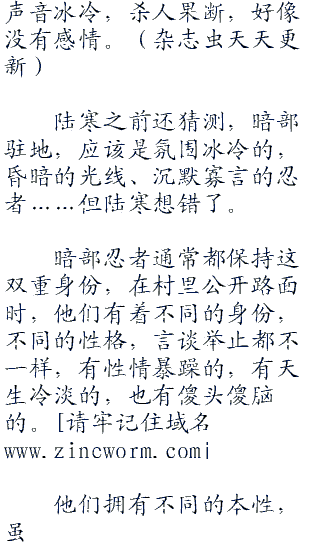 声音冰冷，杀人果断，好像
没有感情。（杂志虫天天更
新）
陆寒之前还猜测，暗部
驻地，应该是氛围冰冷的，
昏暗的光线、沉默寡言的忍
者……但陆寒想错了。
暗部忍者通常都保持这
双重身份，在村里公开路面
时，他们有着不同的身份，
不同的性格，言谈举止都不
一样，有性情暴躁的，有天
生冷淡的，也有傻头傻脑
的。[请牢记住域名
www.zincworm.com|
他们拥有不同的本性，
虽